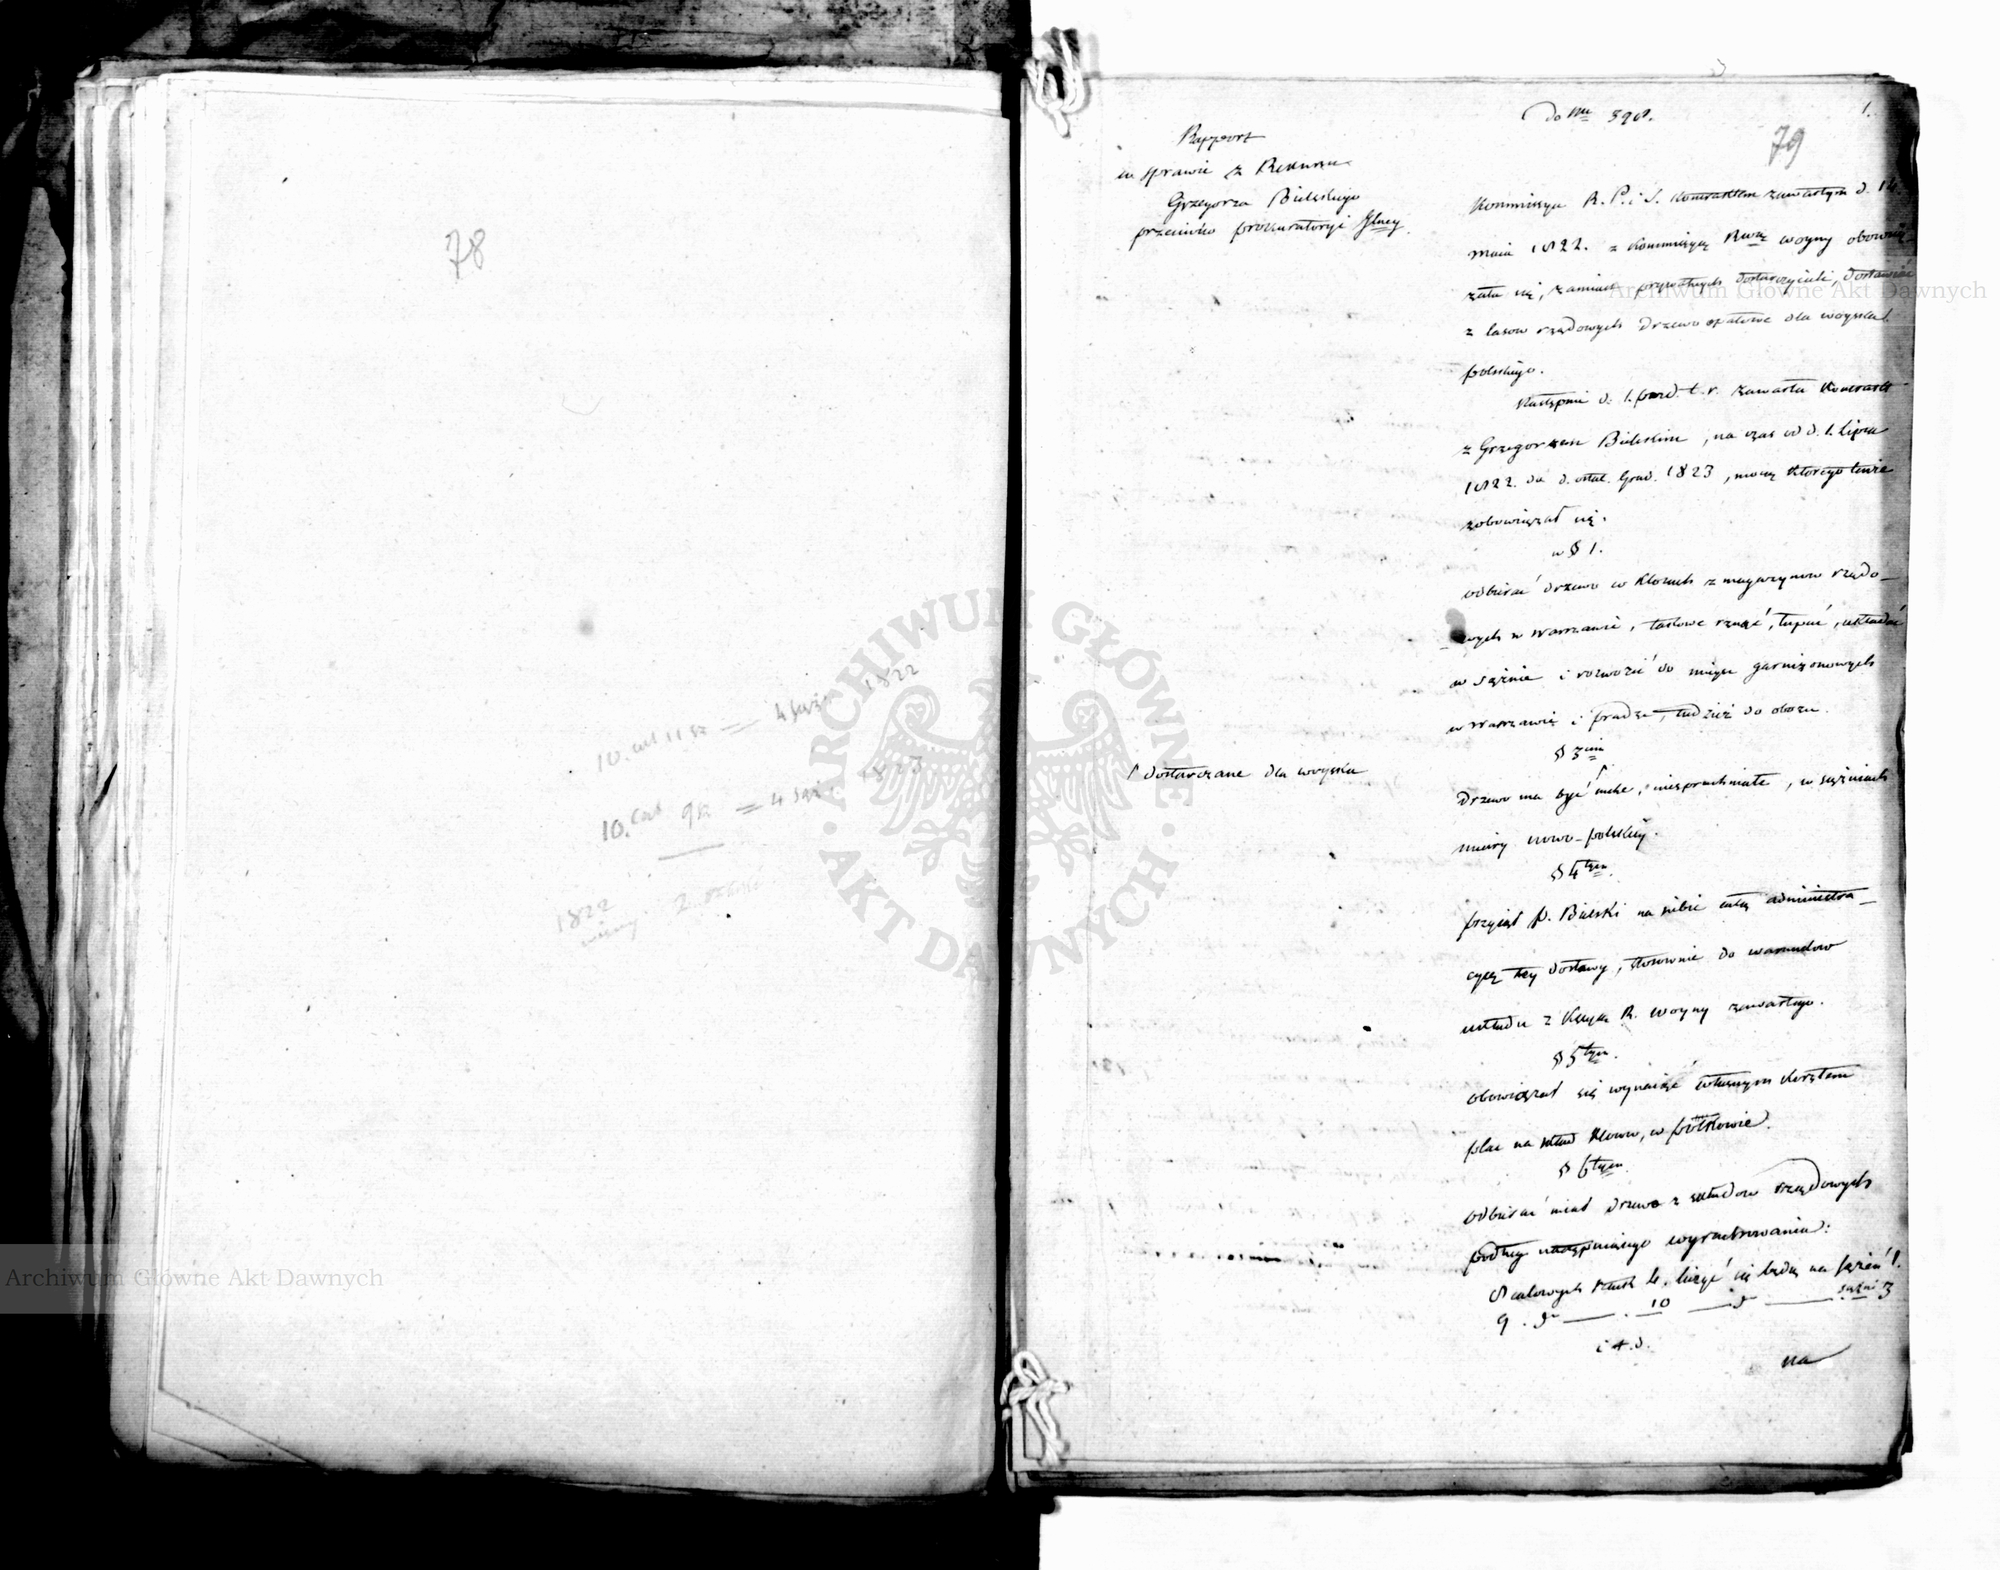 78
10. cal 11 sz = 4 sąż 1822
10. cal 9 sz = 4 sąż 1823
1822
2.
do Nru 598.
1.
79
Rapport
w sprawie z Rekursu
Grzegorza Bielskiego
przeciwko prokuratoryi Glney.
Kommissya R. P. i S. kontraktem zawartym d. 14
maia 1822. z kommissyą Rwą woyny obowią-
zała się, zamiast prywatnych dostarczycieli, dostawiać
z lasow rządowych drzewo opałowe dla woyska
polskiego.
Następnie d. 1. t. r. zawarła kontrakt
z Grzegorzem Bielskim, na czas od d. 1. Lipca
1822. do d. ostat. Grud. 1823, mocą którego tenże
zobowiązał się.
w § 1.
odbierać drzewo w klocach z magazynow rządo-
wych w Warszawie, takowe rznąć, łupać, układać
w sążnie i rozwozić do mieysc garnizonowych
w Warszawie i pradze, tudzież do obozu.
§ 3cim
drzewo ma być suche, niespruchniałe, w sążniach
miary nowo-polskiey.
dostarczane dla woyska
§ 4tym.
przyiął p. Bielski na siebie całą administra-
cyą tey dostawy, stosownie do warunków
układu z Kssyą R. woyny zawartego.
§ 5tym.
obowiązał się wynaiąć własnym kosztem
plac na skład klocow, w
§ 6tym.
odbierać miał drzewo z składow rządowych
podług następuiącego wyrachowania:
8 calowych sztuk 4. liczyć się będą na sążeń 1.
9. do — . 10 — do — sążni 3
i t. d.
na
Archiwum Główne Akt Dawnych
Archiwum Główne Akt Dawnych
ARCHIWUM GŁÓWNE
AKT DAWNYCH